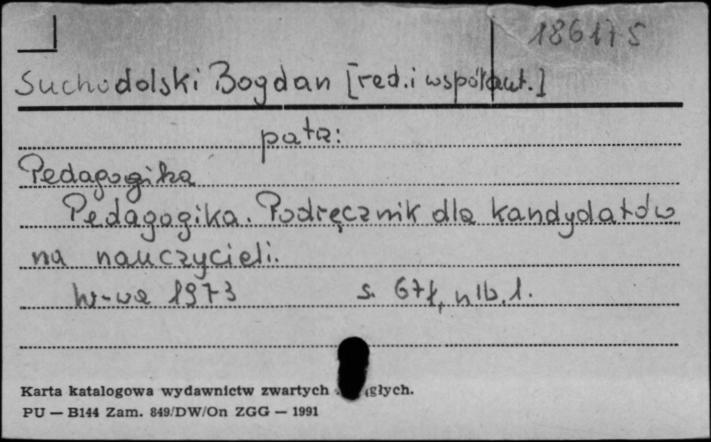 186175
Suchodolski Bogdan [red. i współaut.]
patrz:
Pedagogika
Pedagogika. Podręcznik dla kandydatów
na nauczycieli.
W-wa 1973 s. 671, nlb. 1.
Karta katalogowa wydawnictw zwartych głych.
PU — B144 Zam. 849/DW/On ZGG — 1991